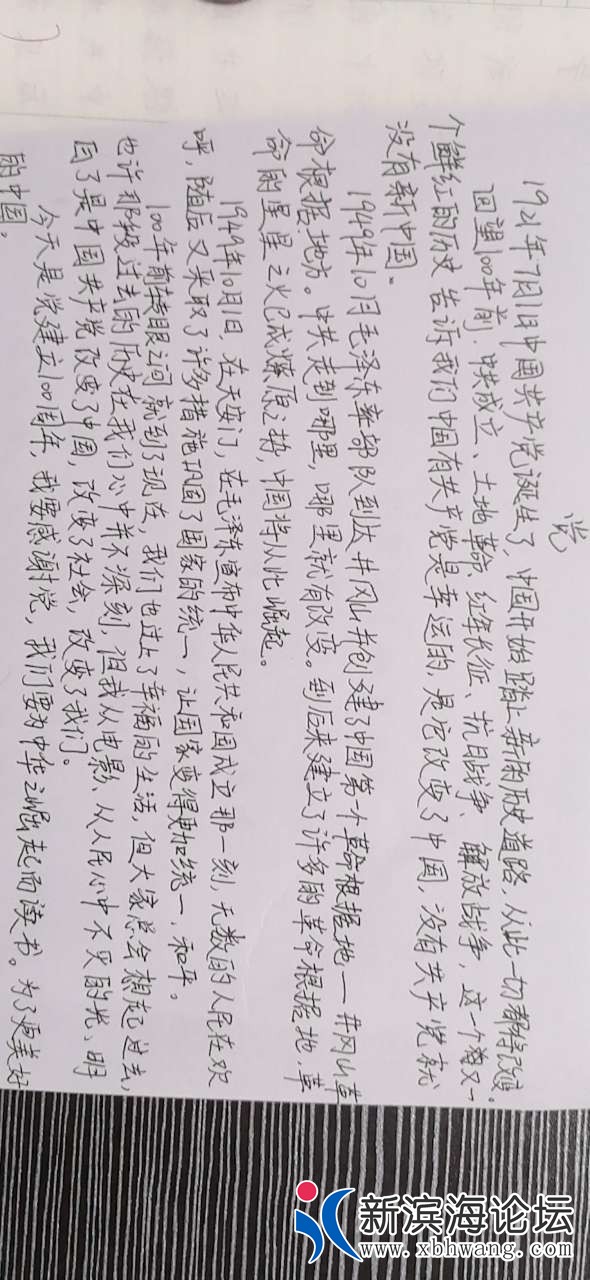 党
1921年7月1日中国共产党诞生了，中国开始踏上新的历史道路，从此一切都将改变。
回望100年前，中共成立、土地革命、红军长征、抗日战争、解放战争，这一个又一
个鲜红的历史告诉我们中国有共产党是幸运的，是它改变了中国，没有共产党就
没有新中国。
1949年10月毛泽东率部队到达井冈山并创建了中国第一个革命根据地—井冈山革
命根据地方。中共走到哪里，哪里就有改变。到后来建立了许多的革命根据地，革
命的星星之火已成燎原之势，中国将从此崛起。
1949年10月1日，在天安门，在毛泽东宣布中华人民共和国成立那一刻，无数的人民在欢
呼，随后又采取了许多措施巩固了国家的统一，让国家变得更加统一，和平。
100年前转眼之间就到了现在，我们也过上了幸福的生活，但大家总会想起过去，
也许那段过去的历史在我们心中并不深刻，但我从电影、从人民心中不灭的光，明
白了是中国共产党改变了中国，改变了社会，改变了我们。
今天是党建立100周年，我要感谢党，我们要为中华之崛起而读书。为了更美好
的中国。
新滨海论坛
www.xbhwang.com